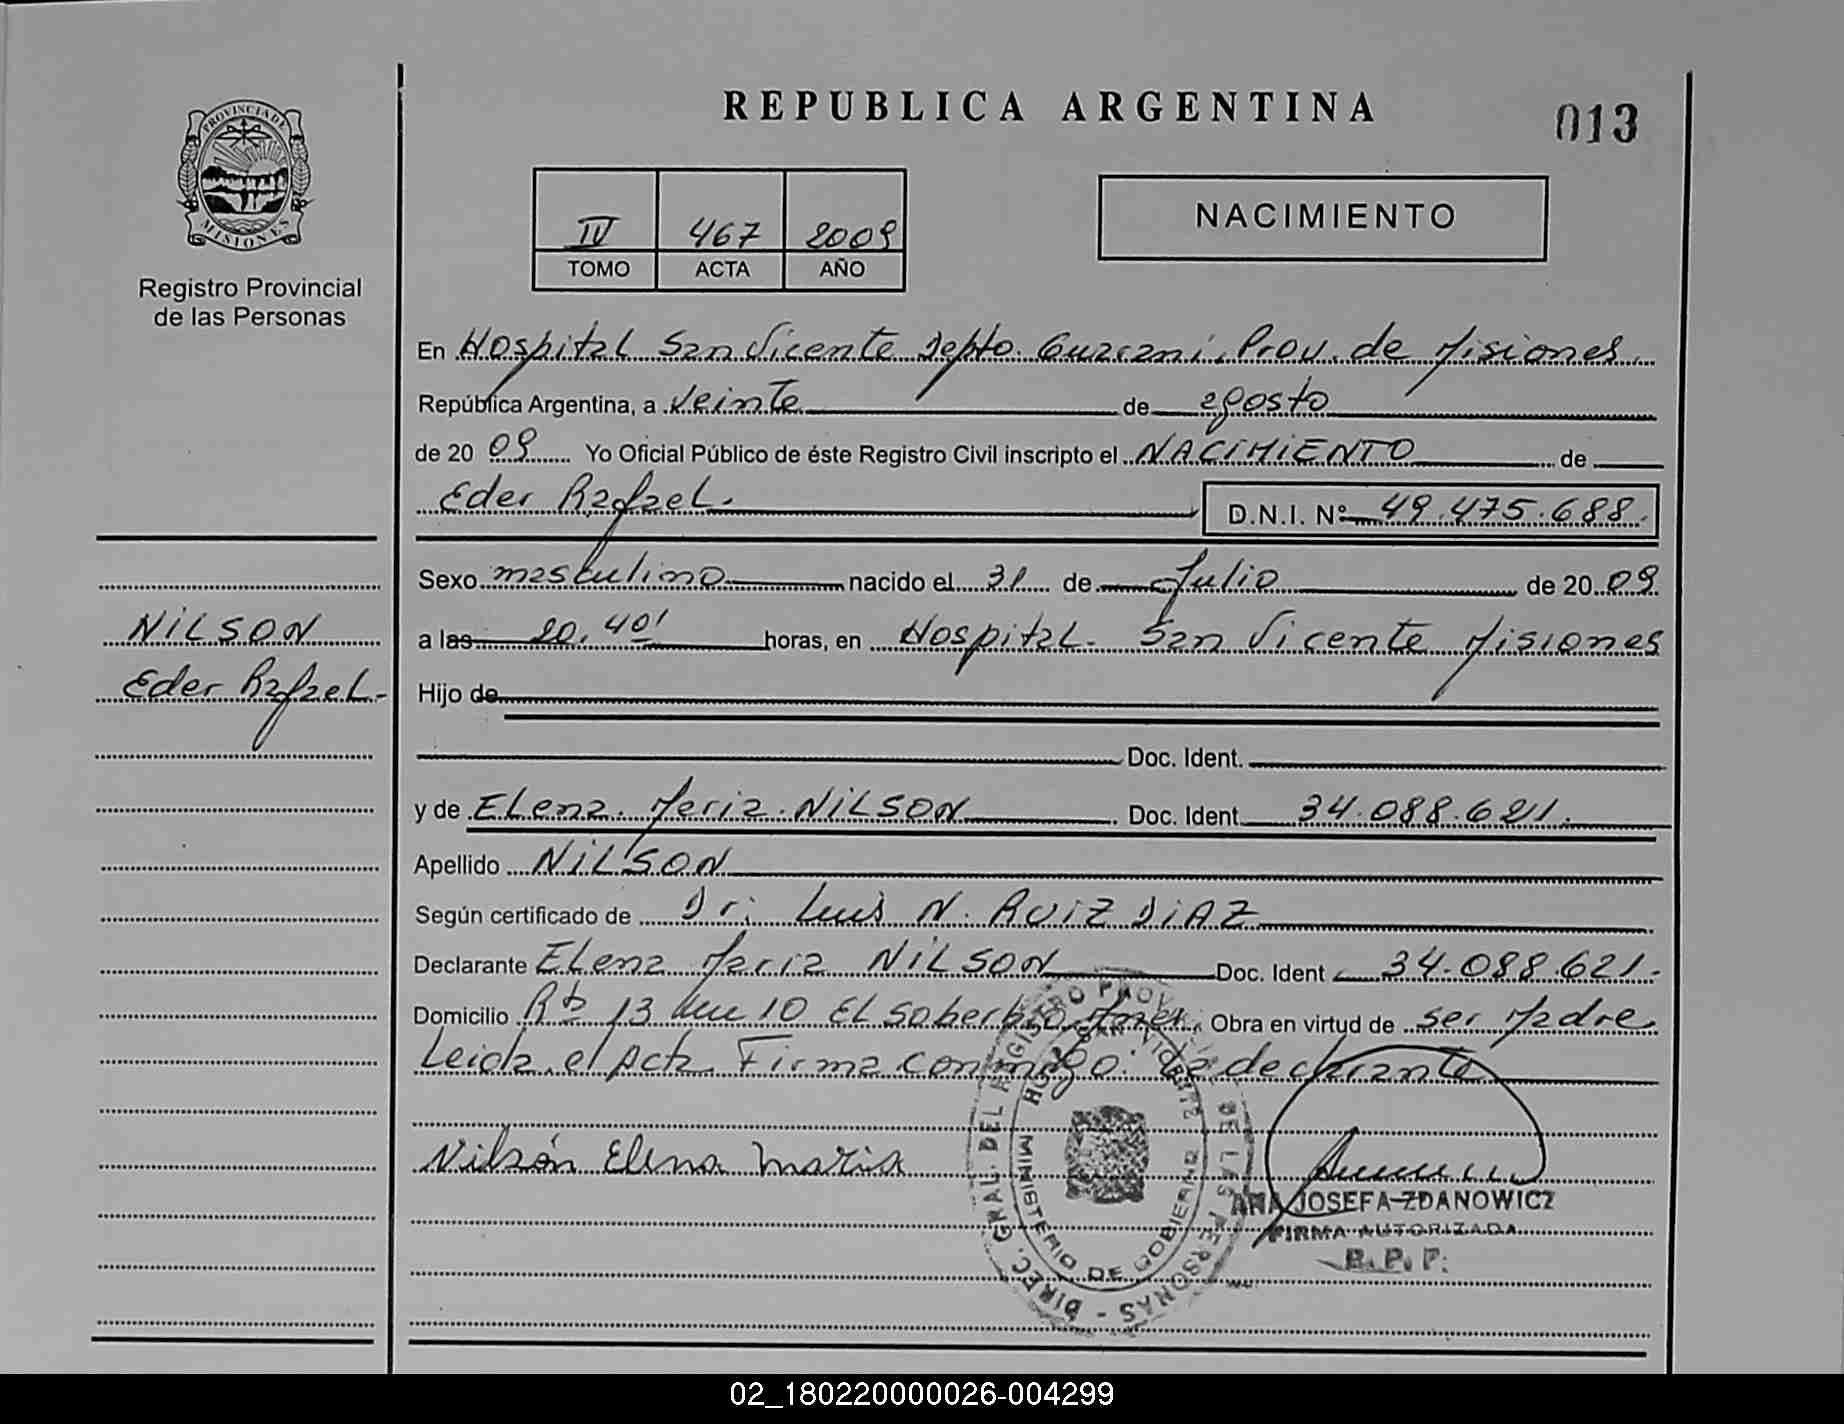 REPUBLICA ARGENTINA
013
PROVINCIA DE MISIONES
Registro Provincial
de las Personas
IV 467 2009
TOMO ACTA AÑO
NACIMIENTO
En Hospital San Vicente Depto. Guarani, Prov. de Misiones
República Argentina, a veinte de agosto
de 20 09 Yo Oficial Público de éste Registro Civil inscripto el NACIMIENTO de
Eder Rafael. D.N.I. Nº 49.475.688.
Sexo masculino nacido el 31 de Julio de 20 09
NILSON
Eder Rafael.-
a las 20.40' horas, en Hospital San Vicente Misiones
Hijo de
Doc. Ident.
y de Elena Maria NILSON Doc. Ident. 34.088.621.
Apellido NILSON
Según certificado de Dr. Luis N. RUIZ DIAZ
Declarante Elena Maria NILSON Doc. Ident 34.088.621.
Domicilio 13 km 10 El Soberbio Obra en virtud de ser Madre
Leida el Acta Firma conmigo: La declarante
Nilsón Elena Maria
DIREC. GRAL. DEL REGISTRO PROV. DE LAS PERSONAS
MINISTERIO DE GOBIERNO
ANA JOSEFA ZDANOWICZ
FIRMA AUTORIZADA
R.P.P.
02_180220000026-004299